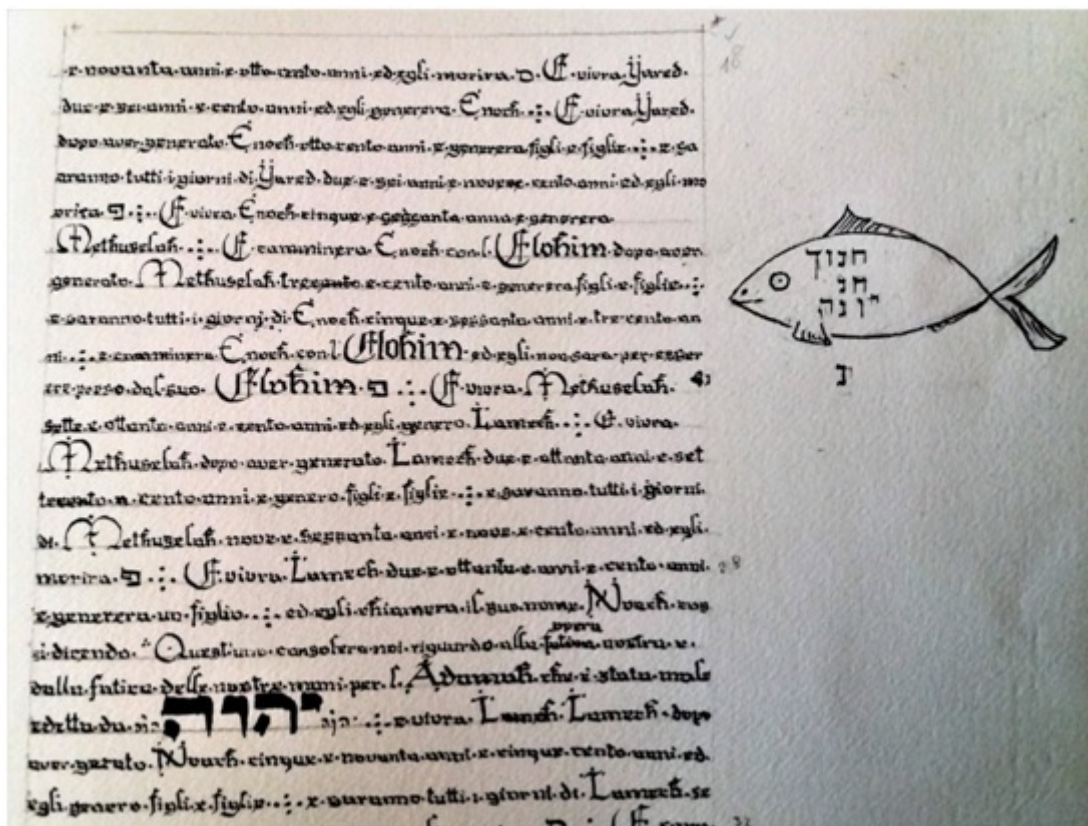 ·e·novanta·anni·e·otto·cento·anni·ed·egli·morira·פ·E·vivra·Yared·
due·e·sei·anni·e·cento·anni·ed·egli·generera·Enoch·:·E·vivra·Yared·
dopo·aver·generato·Enoch·otto·cento·anni·e·generera·figli·e·figlie·:·e·sa
aranno·tutti·i·giorni·di·Yared·due·e·sei·anni·e·nove·cento·anni·ed·egli·mo
orira·פ·:·E·vivra·Enoch·cinque·e·sessanta·anna·e·generera
Methuselah·:·E·camminera·Enoch·con·l·Elohim·dopo·aver
generato·Methuselah·trecento·e·cento·anni·e·generera·figli·e·figlie·:·
e·saranno·tutti·i·giorni·di·Enoch·cinque·e·sessanta·anni·e·tre·cento·an
ni·:·e·camminera·Enoch·con·l·Elohim·ed·egli·non·sara·per·esser
ere·preso·dal·suo·Elohim·פ·:·E·vivra·Methuselah·
sette·e·ottanta·anni·e·cento·anni·ed·egli·genero·Lamech·:·E·vivra·
Methuselah·dopo·aver·generato·Lamech·due·e·ottanta·anni·e·set
trecento·e·cento·anni·e·genero·figli·e·figlie·:·e·saranno·tutti·i·giorni·
di·Methuselah·nove·e·sessanta·anni·e·nove·e·cento·anni·ed·egli·
morira·פ·:·E·vivra·Lamech·due·e·ottanta·e·anni·e·cento·anni·
e·generera·un·figlio·:·ed·egli·chiamera·il·suo·nome·Noach·cos
si·dicendo·Questi·no·consolera·noi·riguardo·alla·fatica·nostra·e·
opera
dalla·fatica·delle·nostre·mani·per·l·Adamah·che·e·stata·male
edetta·da·יהוה·:·e·vivra·Lamech·Lamech·dopo
aver·gerato·Noach·cinque·e·novanta·anni·e·cinque·cento·anni·ed·
egli·genero·figli·e·figlie·:·e·saranno·tutti·i·giorni·di·Lamech·se
18
חנוך
חנ
יונה